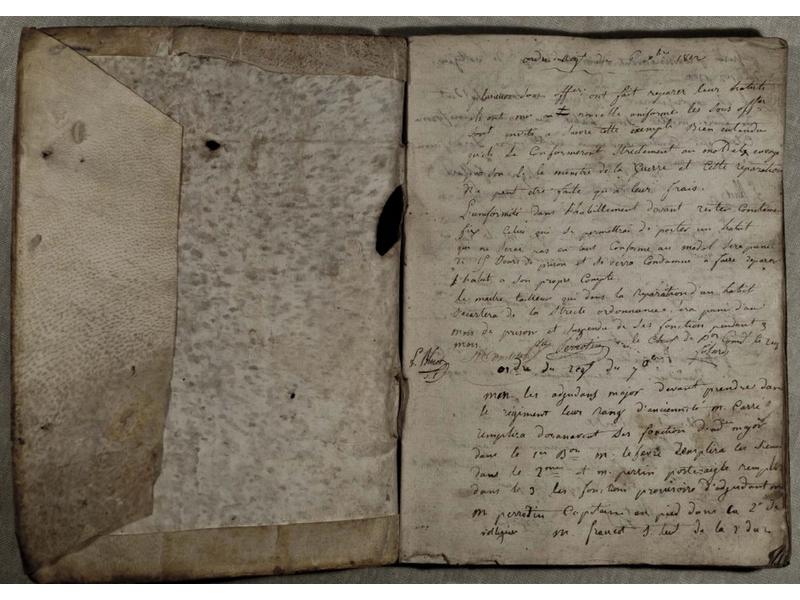 ordre du Regt du 6 xbre 1812
plusieurs Sous offers ont fait reparer leur habits
ils ont nouvelle uniforme les Sous offers
Sont invités a Suivre cette exemple Bien entendu
quils Se Conformeront Strictement au modele envoyé
par Son Ex le ministre de la Guerre et Cette reparation
Ne peut etre faite qu'a leur frais.
L'uniformité dans l'habillement devant rester Constament
fixe Celui qui Se permettrai de porter un habit
qui ne Serai pas en tout Conforme au model Sera puni
de 15 Jours de prison et Se verra Condamné a faire reparer
l'habit a Son propre Compte.
Le maitre tailleur qui dans la reparation d'un habit
Secartera de la Stricte ordonnance, sera puni d'un
mois de prison et Suspendu de Ses fonction pendant 3
mois. le Chef de Bon Comdt le Regt
ordre du regt du 7 xbre
mm. les adjudans major devant prendre dans
le regiment leur rang d'ancienneté m. Carré
remplira dorenavent Ses fonction d'adt major
dans le 1er Bon m. lefevre Remplira les Siennes
dans le 2eme et m. perrin porte-aigle remplira
dans le 3 les fonctions provisoire d'adjudant m
m perrodin Capitaine en pied dans la 2e de
voltigeur m. francot S. lieut de la 2 du 2